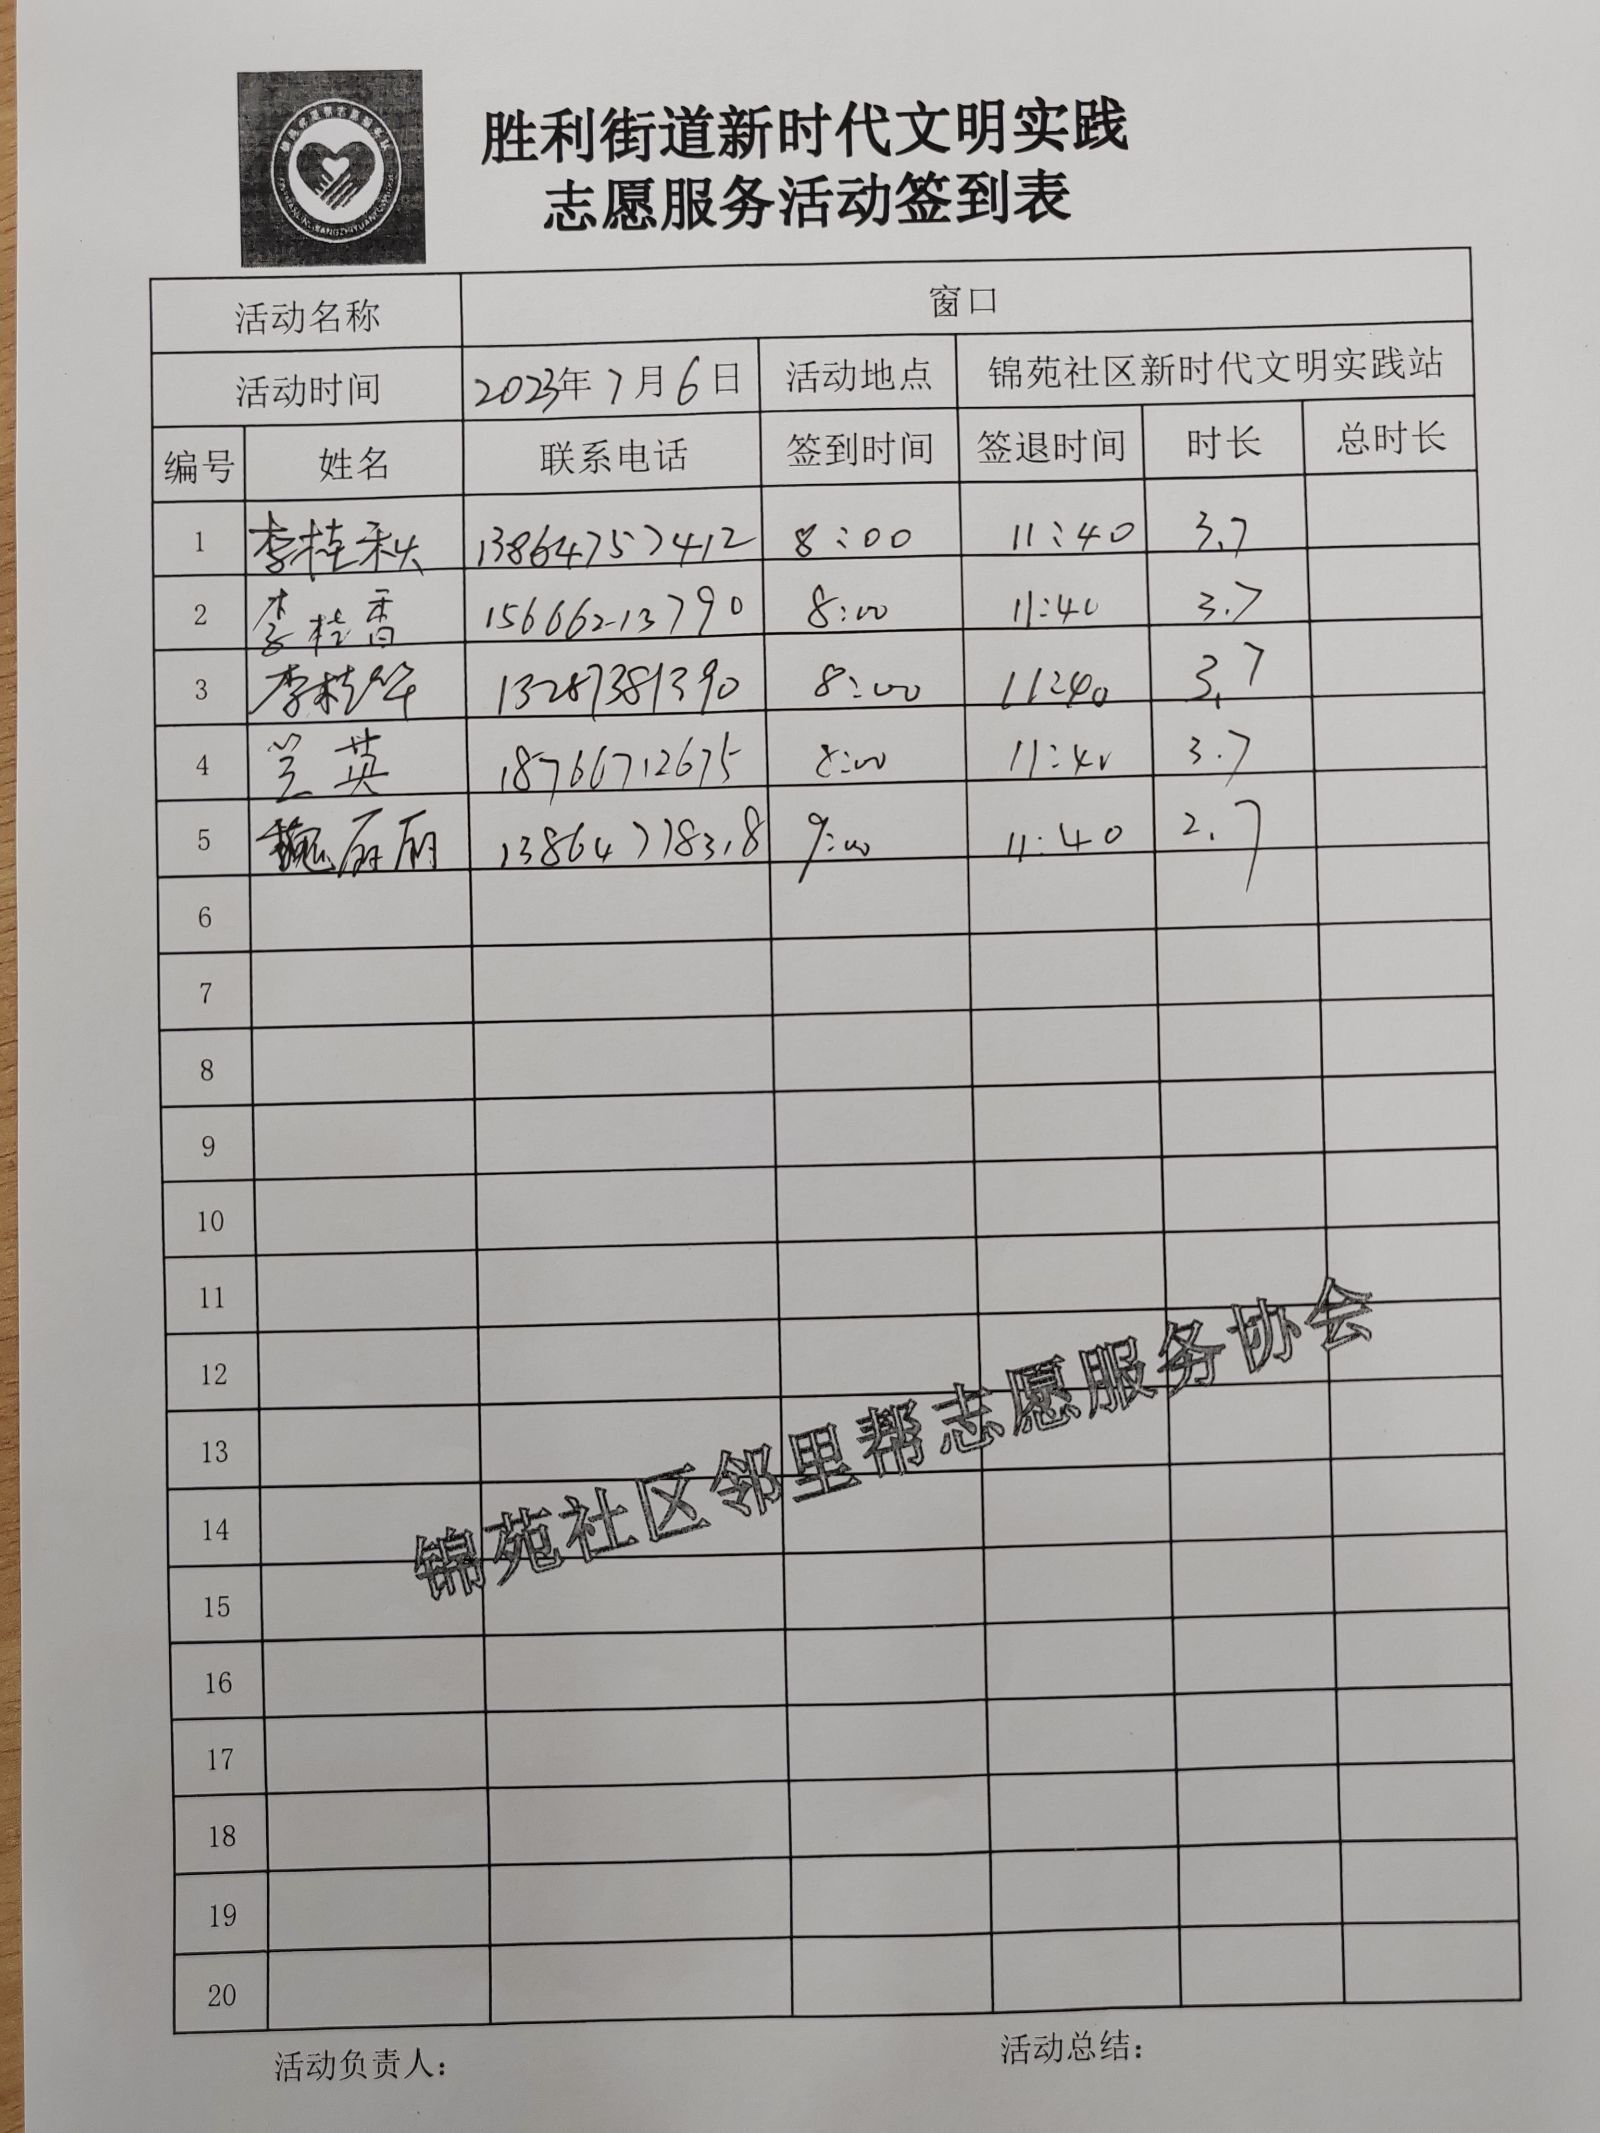 胜利街道新时代文明实践
志愿服务活动签到表
活动名称 窗口
活动时间 2023年7月6日 活动地点 锦苑社区新时代文明实践站
编号 姓名 联系电话 签到时间 签退时间 时长 总时长
1 李桂秋 13864757412 8:00 11:40 3.7
2 李桂香 15666213790 8:00 11:40 3.7
3 李桂华 13287381390 8:00 11:40 3.7
4 兰英 18766712675 8:00 11:40 3.7
5 魏丽丽 13864778318 9:00 11:40 2.7
6
7
8
9
10
11
12
13
14
15
16
17
18
19
20
锦苑社区邻里帮志愿服务协会
活动负责人： 活动总结：